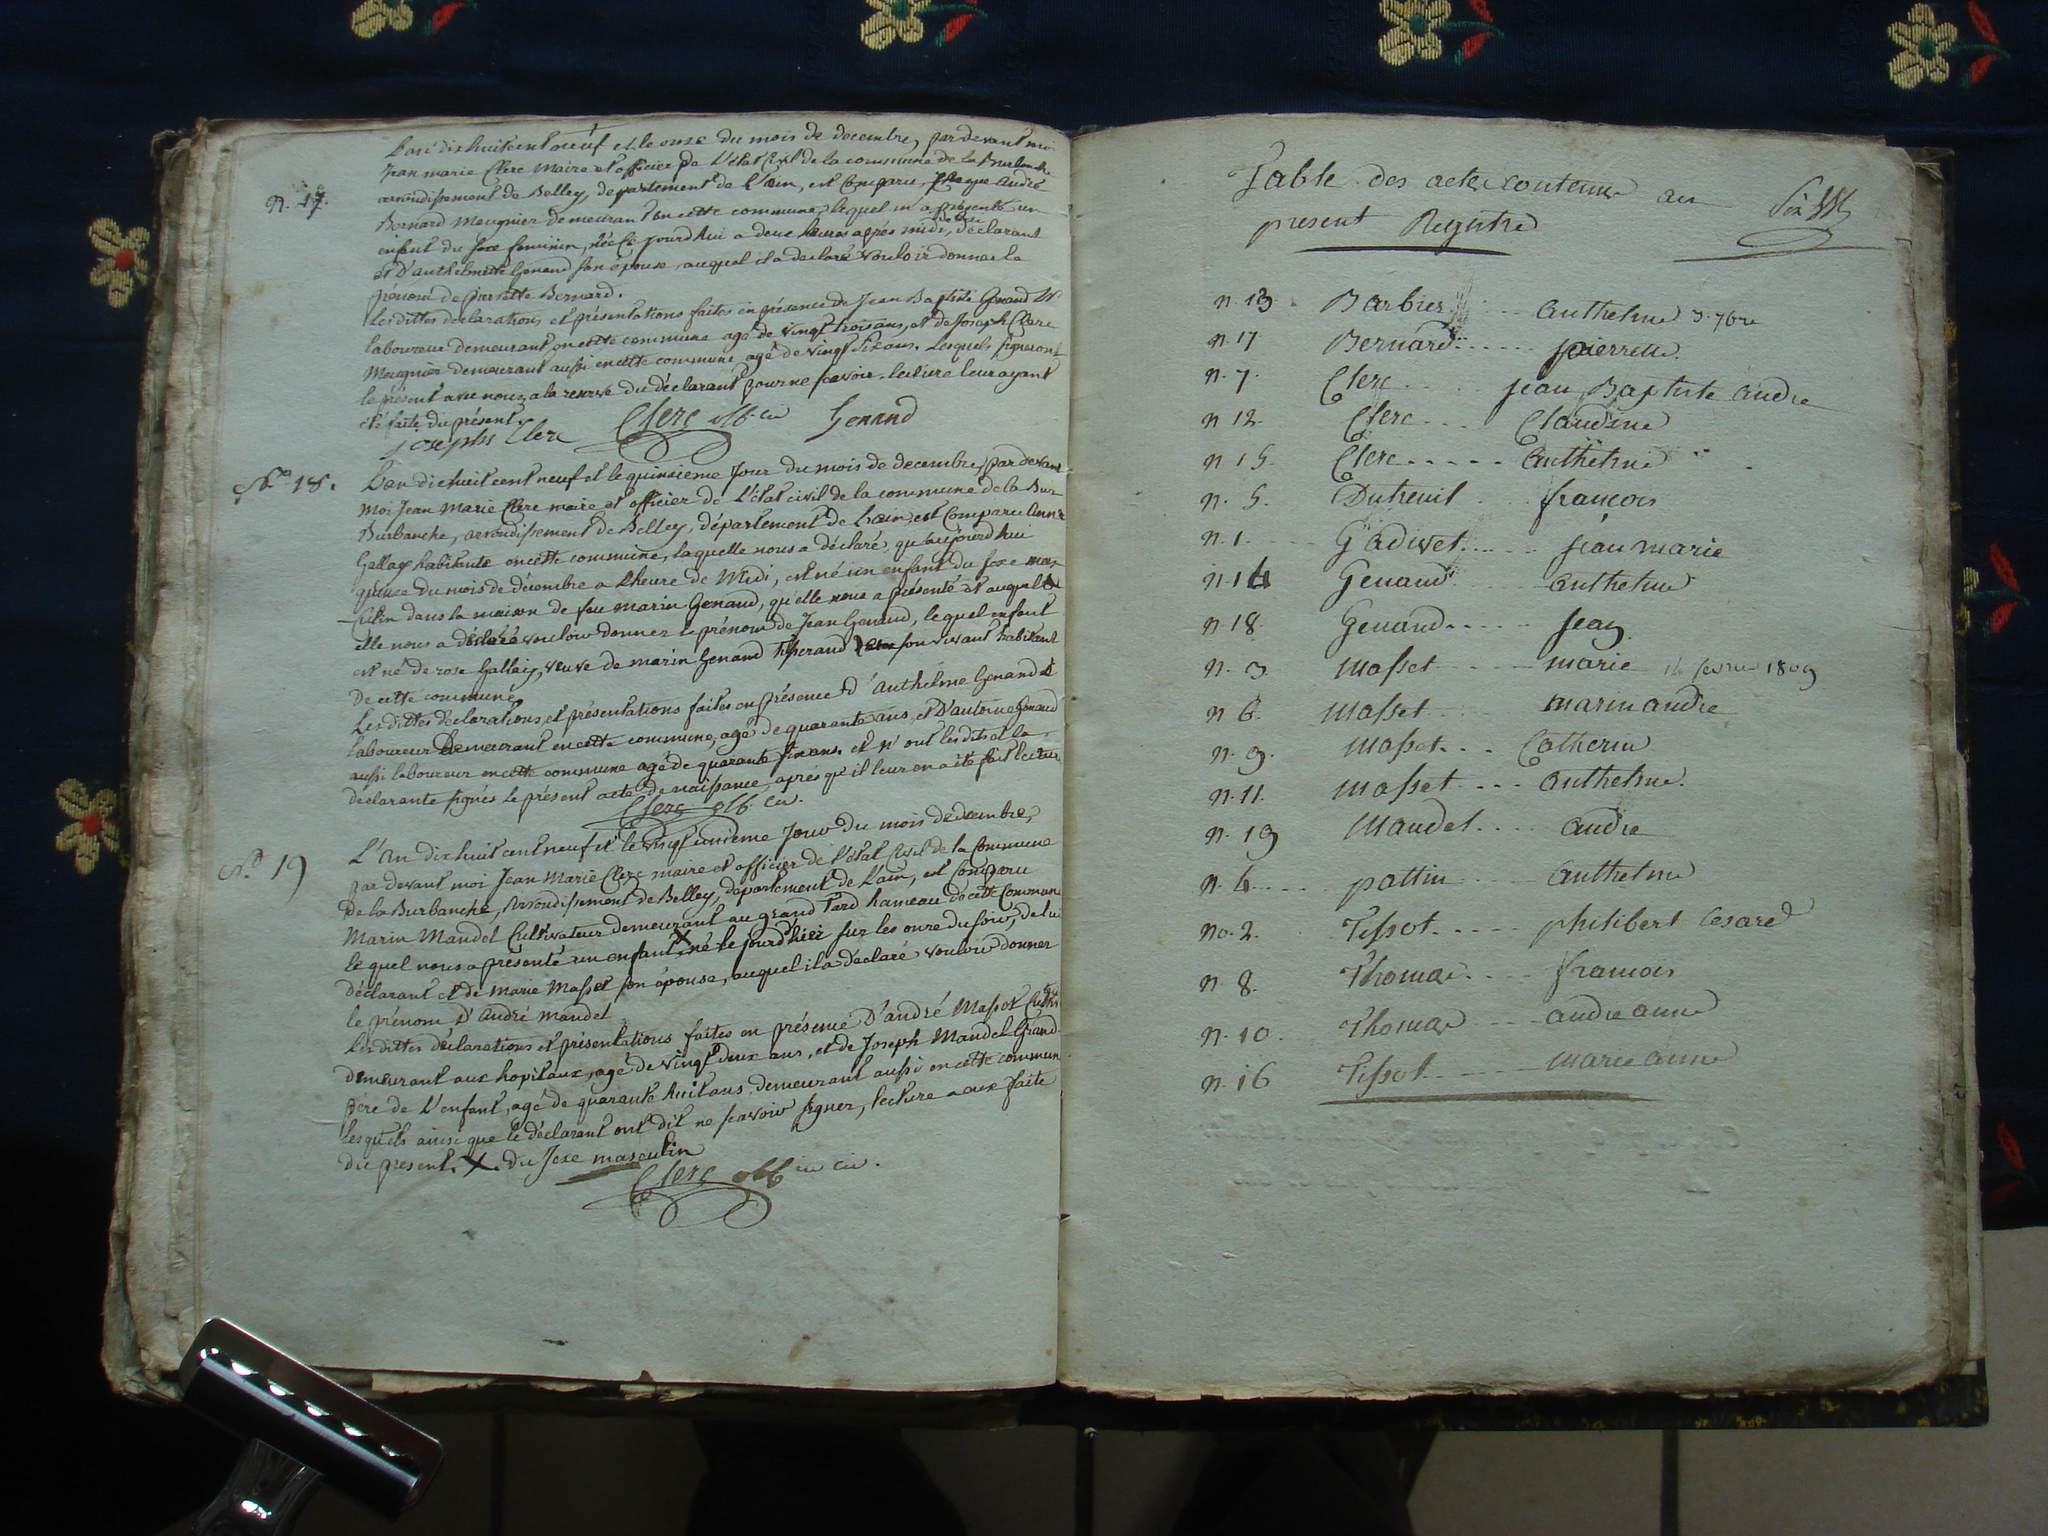 n. 17.
L'an dix huit cent neuf et le onze du mois de decembre, par devant moi
jean marie Clerc Maire et officier de L'état Civil de la commune de la Burbanche
arrondissement de Belley, departement de L'ain, est Comparu, andré
Bernard Meugnier demeurant en cette commune, lequel m'a présenté un
enfant du sexe feminin, née Ce jourd'hui a deux heures après midi, déclarant
et D'anthelmette Genand son épouse, auquel il a declaré vouloir donner le
prénom de pierrette Bernard.
Les dittes declarations et présentations faites en présence de Jean Baptiste Genand
laboureur demeurant en cette commune agé de vingt trois ans, et de Joseph Clerc
Meugnier demeurant aussi en cette commune agé de vingt six ans. Lesquels signeront
le présent avec nous a la reserve du déclarant pour ne scavoir. lecture leur ayant
été faite du présent.
joseph Clerc Clerc off. civ Genand
No. 18.
L'an dix huit cent neuf et le quinsieme Jour du mois de decembre, par devant
Moi Jean Marie Clerc maire et officier de L'état civil de la commune de la Bur
Burbanche, arrondissement de Belley, département de Lain, est Comparu Anne
Gallay habitante en cette commune, laquelle nous a déclaré, qu'aujourd'hui
quinze du mois de décembre a L'heure de Midi, est né un enfant du sexe mas
-culin dans la maison de feu marin Genand, qu'elle nous a présenté et auquel
elle nous a déclaré vouloir donner le prénom de Jean Genand, lequel enfant
est né de rose Gallay, veuve de marin Genand Tisserand son vivant habitant
de cette commune
Les dittes déclarations et présentations faites en présence d'Anthelme Genand
laboureur Demeurant en cette commune, agé de quarante ans, et D'antoine Genand
aussi laboureur en cette commune agé de quarante six ans. et n'ont lesdits et la
declarante signés le présent acte de naissance, après qu'il leur en a été fait lecture
Clerc off. civ.
No. 19
L'An dix huit cent neuf et le vingt unième Jour du mois de décembre,
par devant moi Jean Marie Clerc maire et officier de l'état Civil de la Commune
de la Burbanche, Arrondissement de Belley, département de L'ain, est Comparu
Marin Mandel Cultivateur demeurant au grand Pard hameau de cette Commune
le quel nous a présenté un enfant X né le jourd'hier sur les onze du soir, de lui
déclarant et de Marie Masset son épouse, auquel il a déclaré vouloir donner
le prénom D'André Mandel
Les dittes déclarations et présentations faites en présence D'andré Masset
demeurant aux hopitaux, agé de vingt deux ans, et de Joseph Mandel Grand
père de L'enfant, agé de quarante huit ans demeurant aussi en cette commune
lesquels ainsi que le déclarant ont dit ne scavoir signer, lecture a eux faite
du present. X. du sexe masculin
Clerc off civ.
Table des actes contenus au
present Registre
n. 13 Barbier anthelme 3. 7bre
n. 17 Bernard pierrette
n. 7. Clerc jean Baptiste andre
n 12. Clerc Claudine
n 15. Clerc anthelme
n. 5. Dutreuil francois
n. 1. Gadivet jean marie
n. 14 Genand anthelme
n 18. Genand jean
n. 3 Masset marie 1809
n 6. Masset marin andre
n. 9. Masset Catherine
n. 11. Masset anthelme.
n. 19 Mandel andre
n. 4 pattin anthelme
no. 2. Tissot philibert Cesare
n 8. Thomas francois
n. 10. Thomas andre anne
n. 16 Tissot marie anne